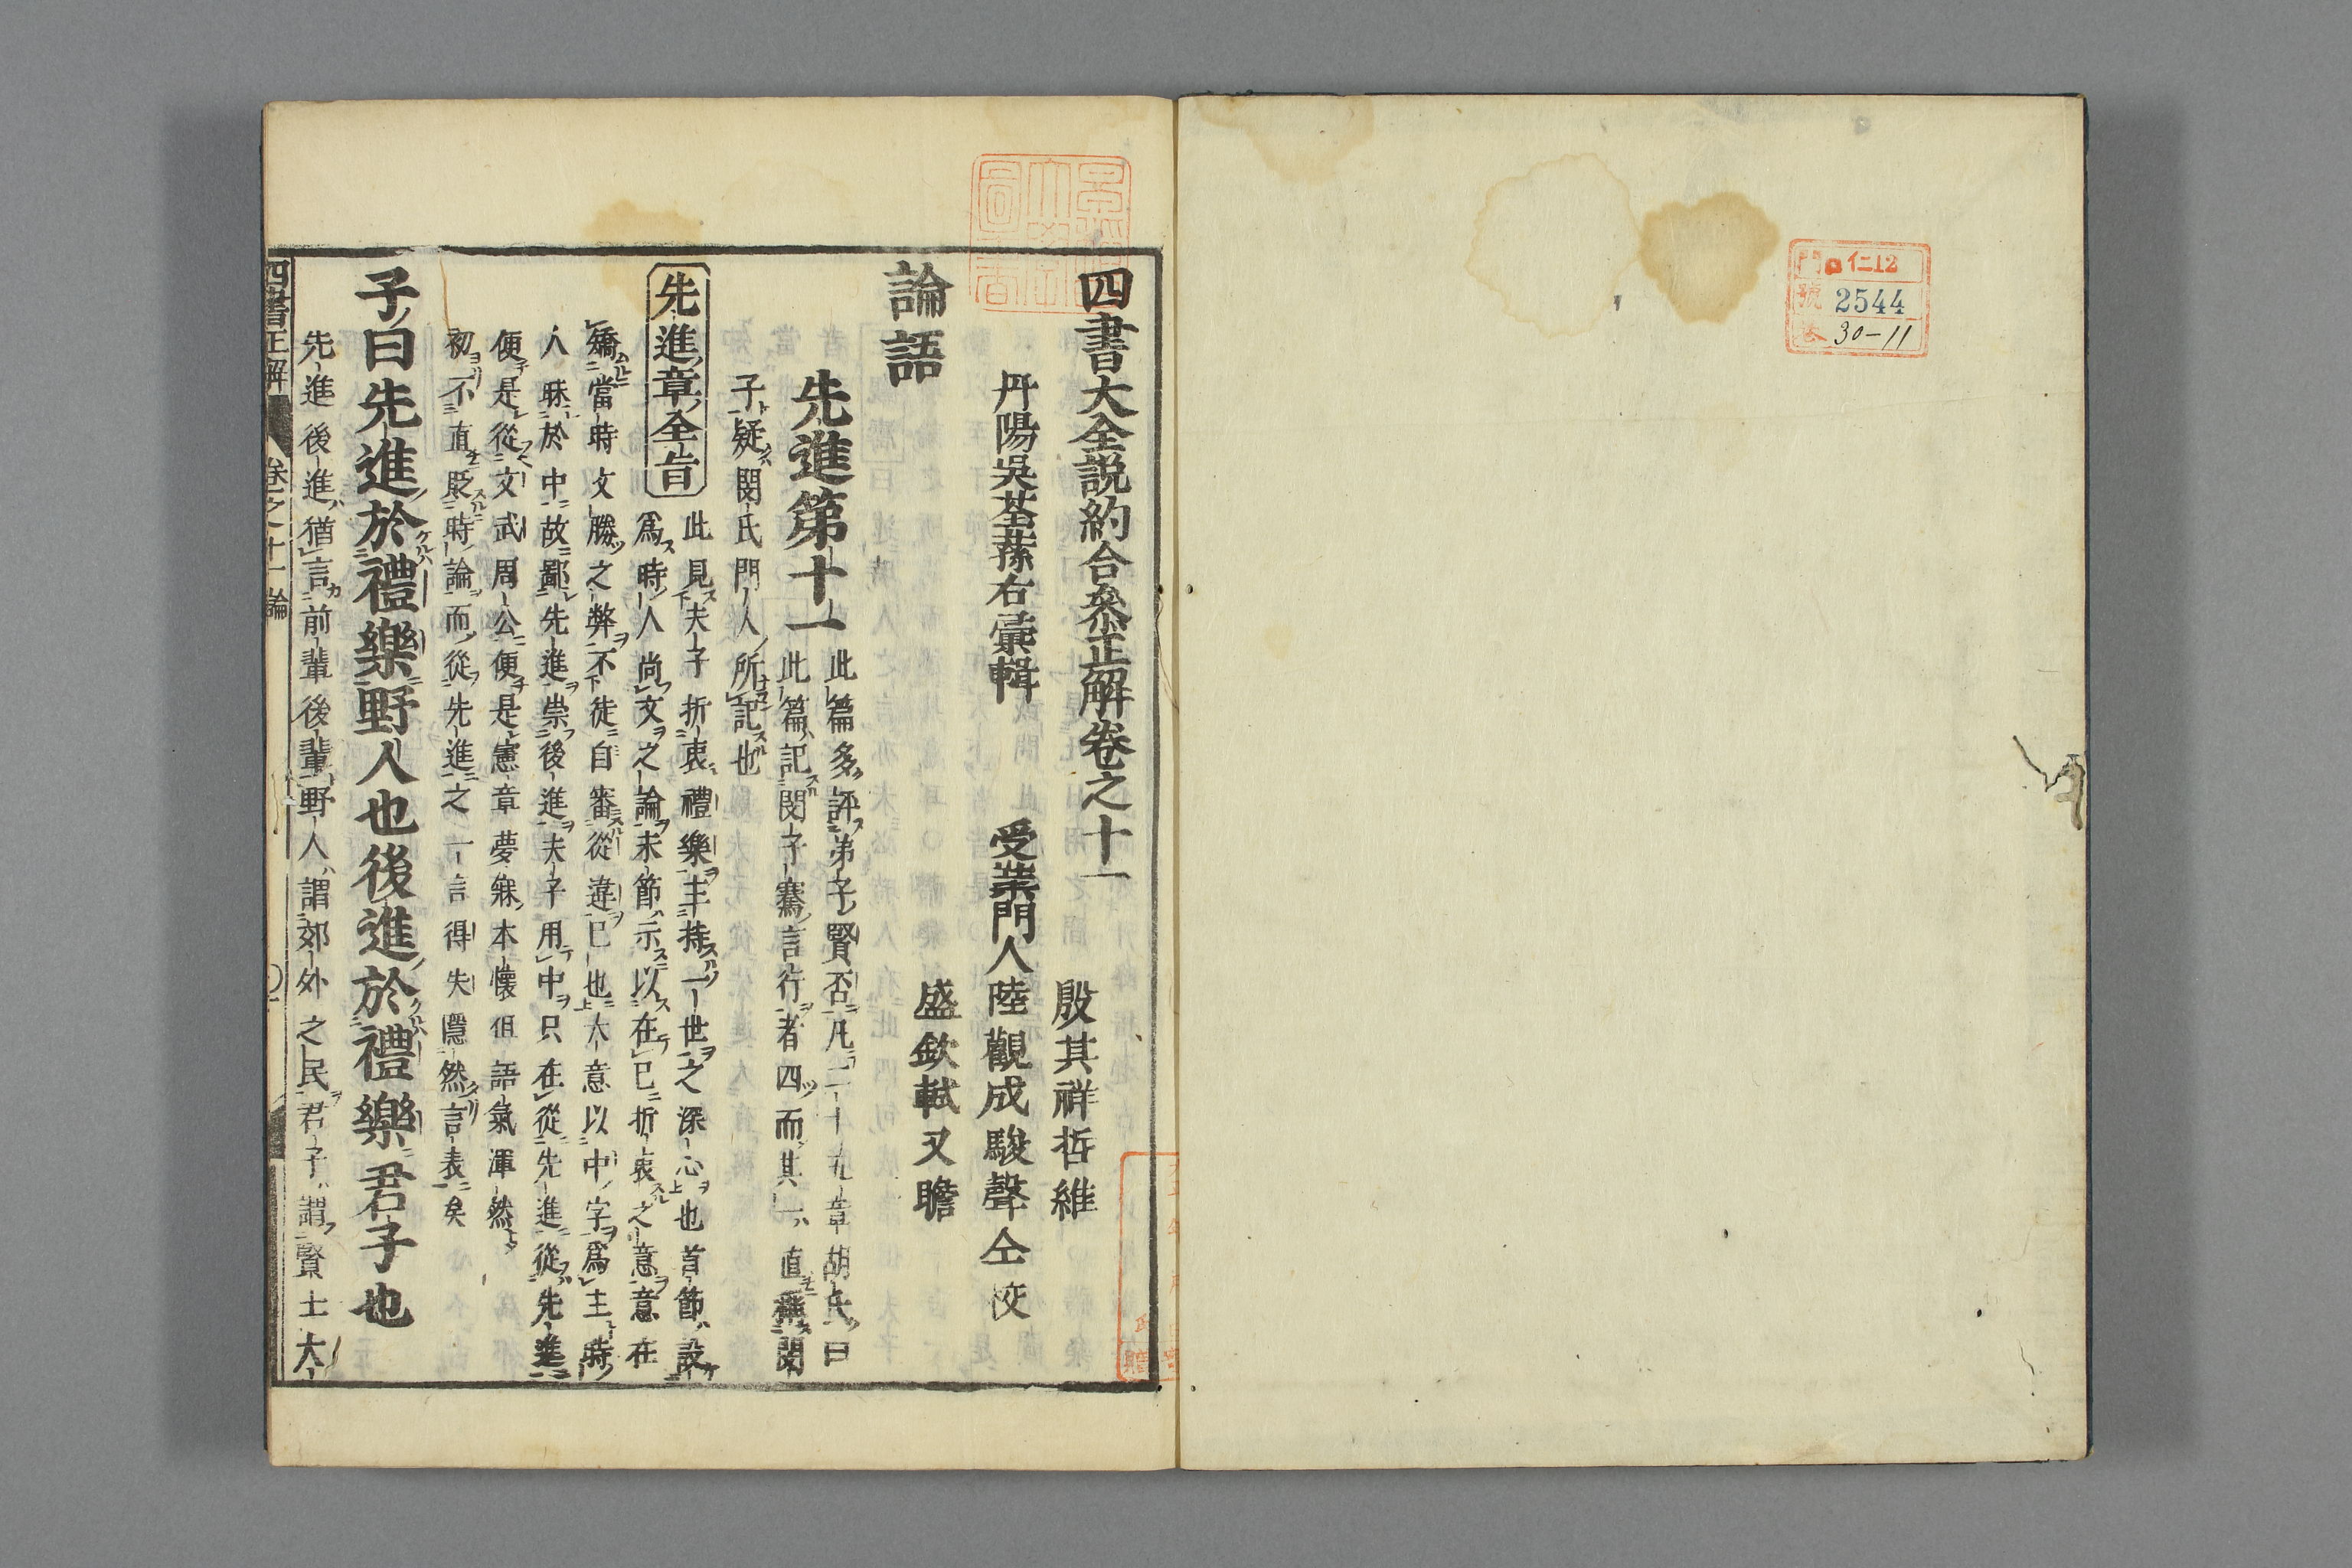 門 仁12
號 2544
卷 30-11
四書大全説約合參正解卷之十一
丹陽吳荃蓀右彙輯
受業門人
殷其祥哲維
陸觀成駿聲仝校
盛欽軾又瞻
論語
先進第十一
此篇多評弟子賢否凡二十九章胡氏曰
此篇記閔子騫言行者四而其一直稱閔
子疑閔氏門人所記也
先進章全旨
此見夫子折衷禮樂主持一世之深心也首節設
爲時人尚文之論末節示以在已折衷之意意在
矯當時文勝之弊不徒自審從違已也大意以中字爲主時
人昧於中故鄙先進崇後進夫子用中只在從先進從先進
便是從文武周公便是憲章夢寐本懷但語氣渾然
初不直貶時論而從先進之一言得失隱然言表矣
子曰先進於禮樂野人也後進於禮樂君子也
先進後進猶言前輩後輩野人謂郊外之民君子謂賢士大
四書正解 卷之十一 論